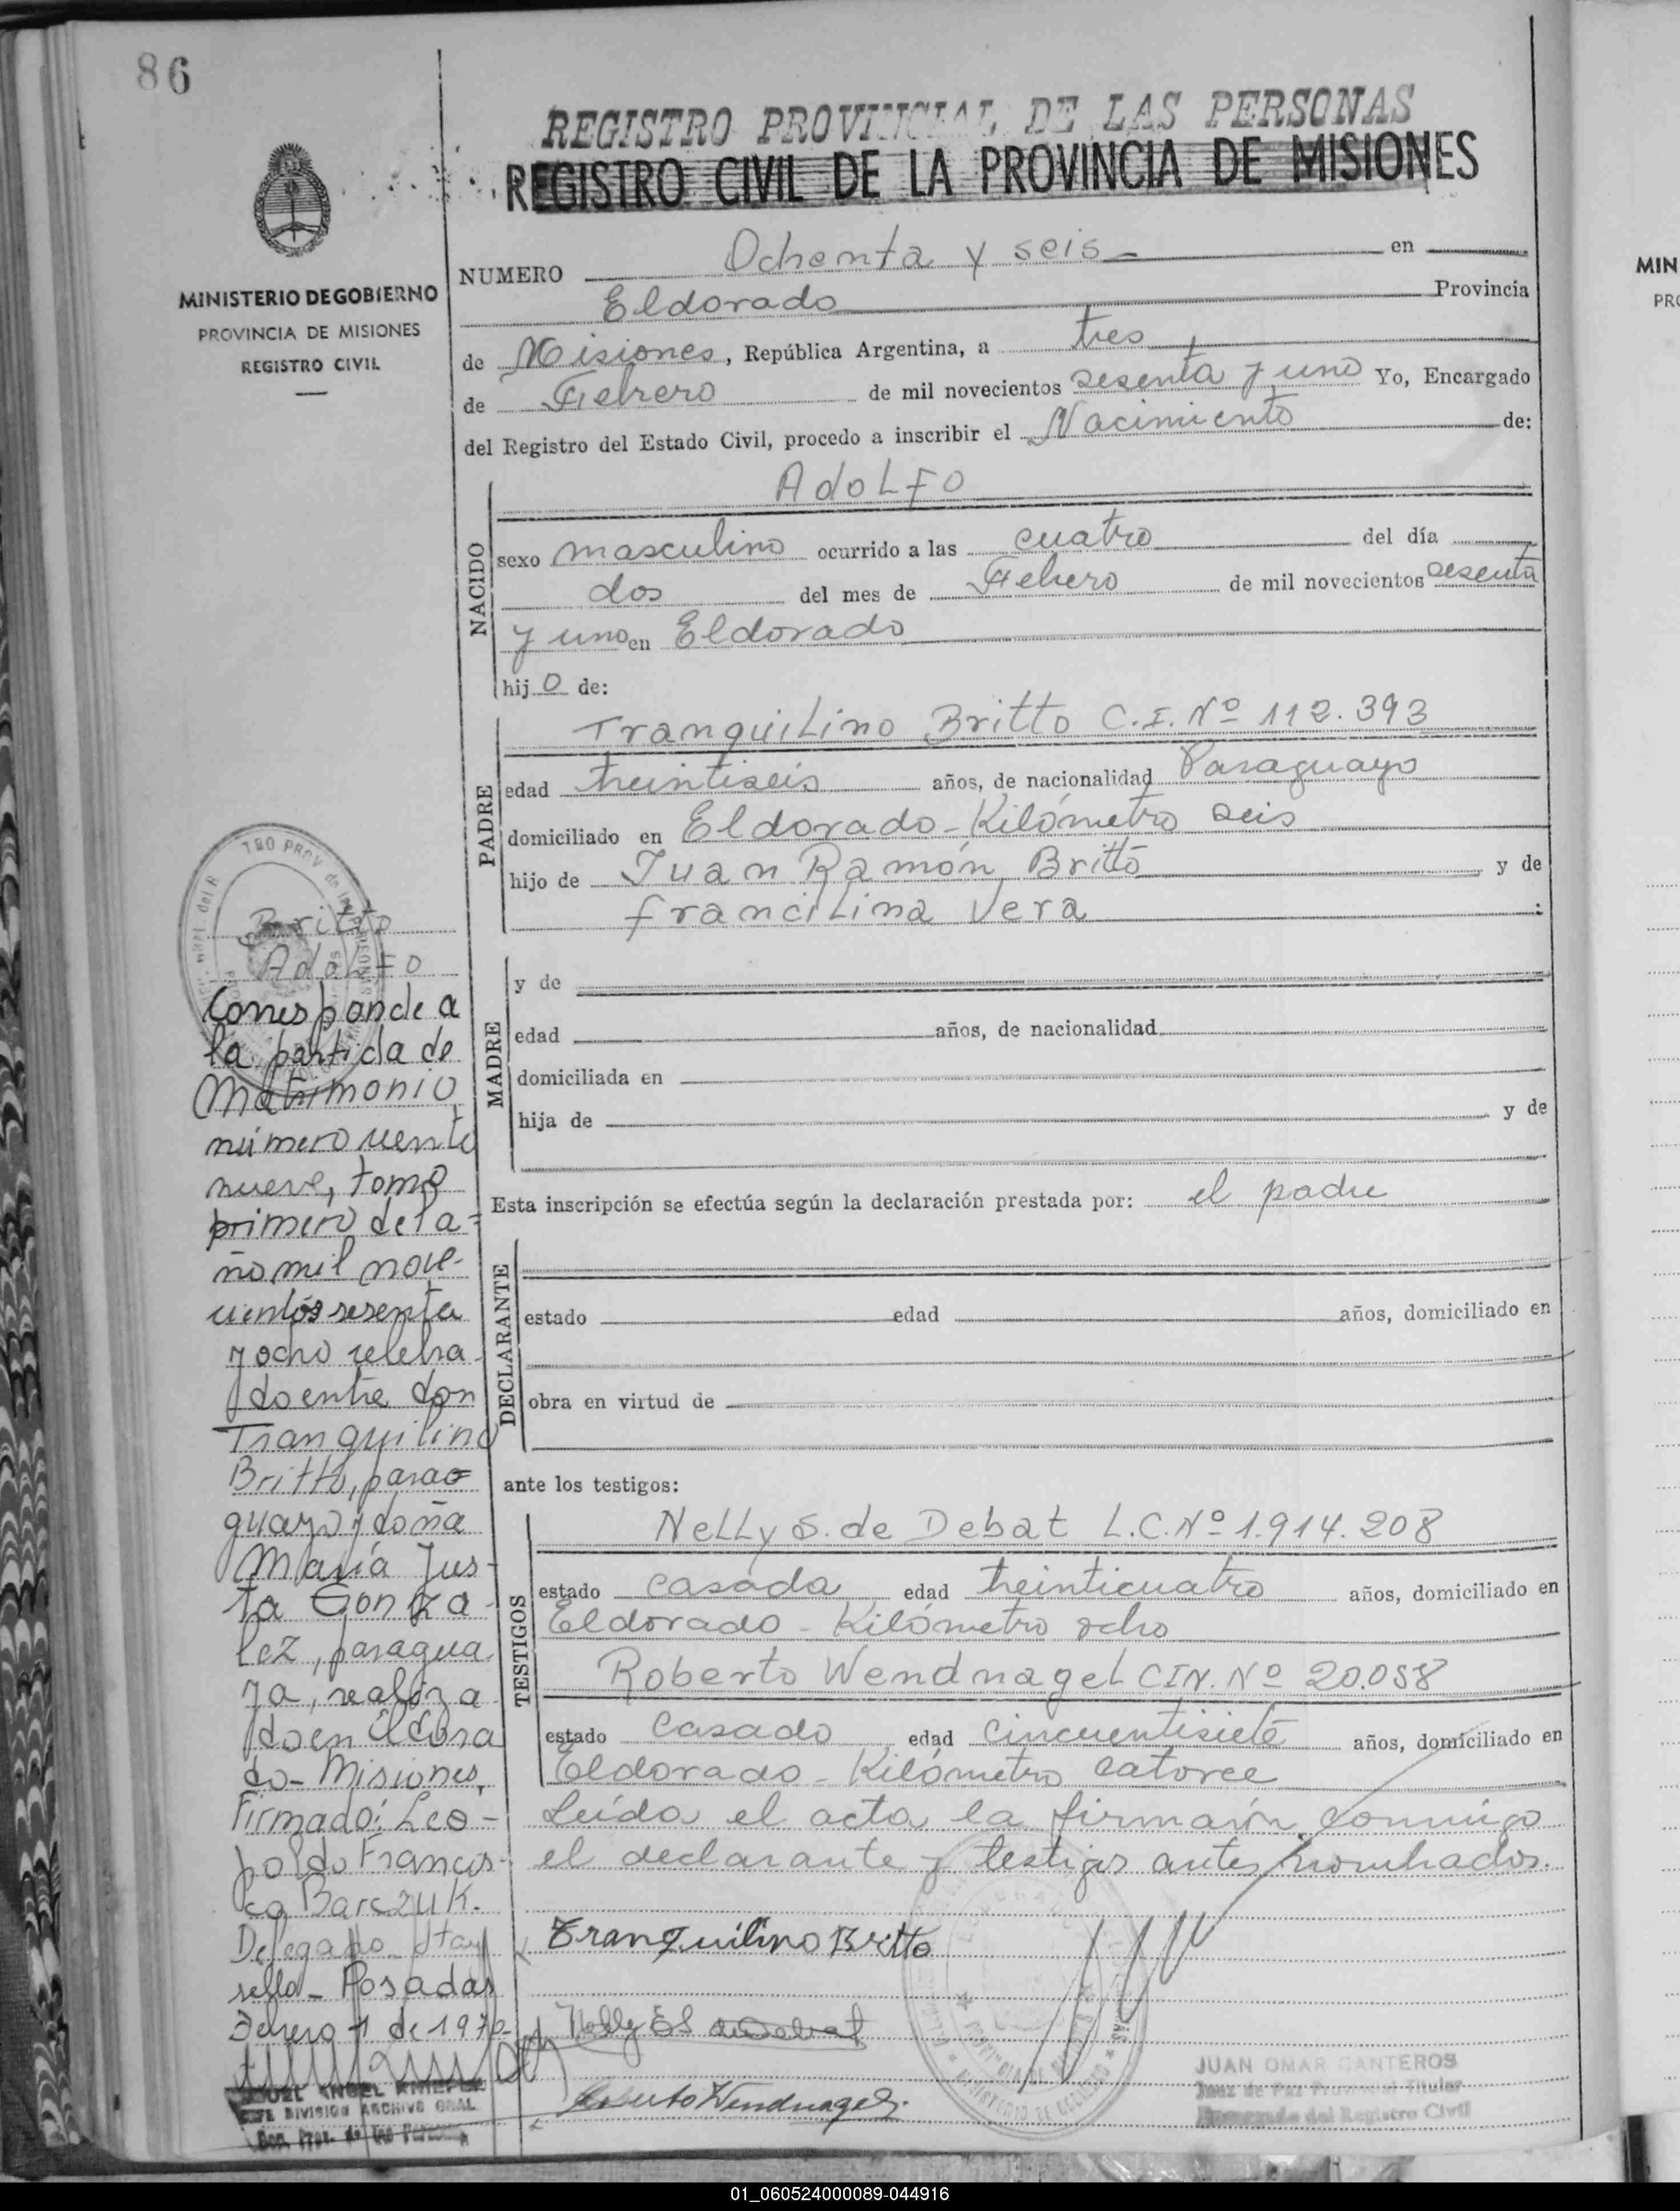 86
REGISTRO PROVINCIAL DE LAS PERSONAS
REGISTRO CIVIL DE LA PROVINCIA DE MISIONES
MINISTERIO DE GOBIERNO
PROVINCIA DE MISIONES
REGISTRO CIVIL
NUMERO Ochenta y seis en
Eldorado Provincia
de Misiones, República Argentina, a tres
de Febrero de mil novecientos sesenta y uno Yo, Encargado
del Registro del Estado Civil, procedo a inscribir el Nacimiento de:
NACIDO
AdoLFO
sexo masculino ocurrido a las cuatro del día
dos del mes de Febrero de mil novecientos sesenta
y uno en Eldorado
hijo de:
PADRE
TranquiLino Britto C.I. Nº 112.393
edad treintiseis años, de nacionalidad Paraguayo
domiciliado en Eldorado - Kilómetro seis
hijo de Juan Ramón Britto y de
franciLina Vera :
MADRE
y de
edad años, de nacionalidad
domiciliada en
hija de y de
Esta inscripción se efectúa según la declaración prestada por: el padre
DECLARANTE
estado edad años, domiciliado en
obra en virtud de
ante los testigos:
TESTIGOS
NeLLy S. de Debat L.C. Nº 1.914.208
estado casada edad treinticuatro años, domiciliado en
Eldorado - Kilómetro ocho
Roberto WendnageL CIN. Nº 20.058
estado casado edad cincuentisiete años, domiciliado en
Eldorado - Kilómetro catorce
Leída el acta la firmarón conmigo
el declarante y testigos antes nombrados.
Tranquilino Britto
Nelly
Roberto Wendnagel
JUAN OMAR CANTEROS
Juez de Paz Provincial Titular
Encargado del Registro Civil
Britto
AdoLFO
Corresponde a
la partida de
Matrimonio
número veinte
nueve, tomo
primero del a-
ño mil nove-
cientos sesenta
y ocho celebra-
do entre don
Tranquilino
Britto, para=
guayo y doña
María Jus-
ta Gonza-
lez, paragua-
ya, realiza-
do en Eldora
do - Misiones,
Firmado: Leo-
poldo Francis-
co Barczuk.
Delegado. Hay
sello - Posadas
Febrero 1 de 1970-
JEFE DIVISION ARCHIVO GRAL
01_060524000089-044916